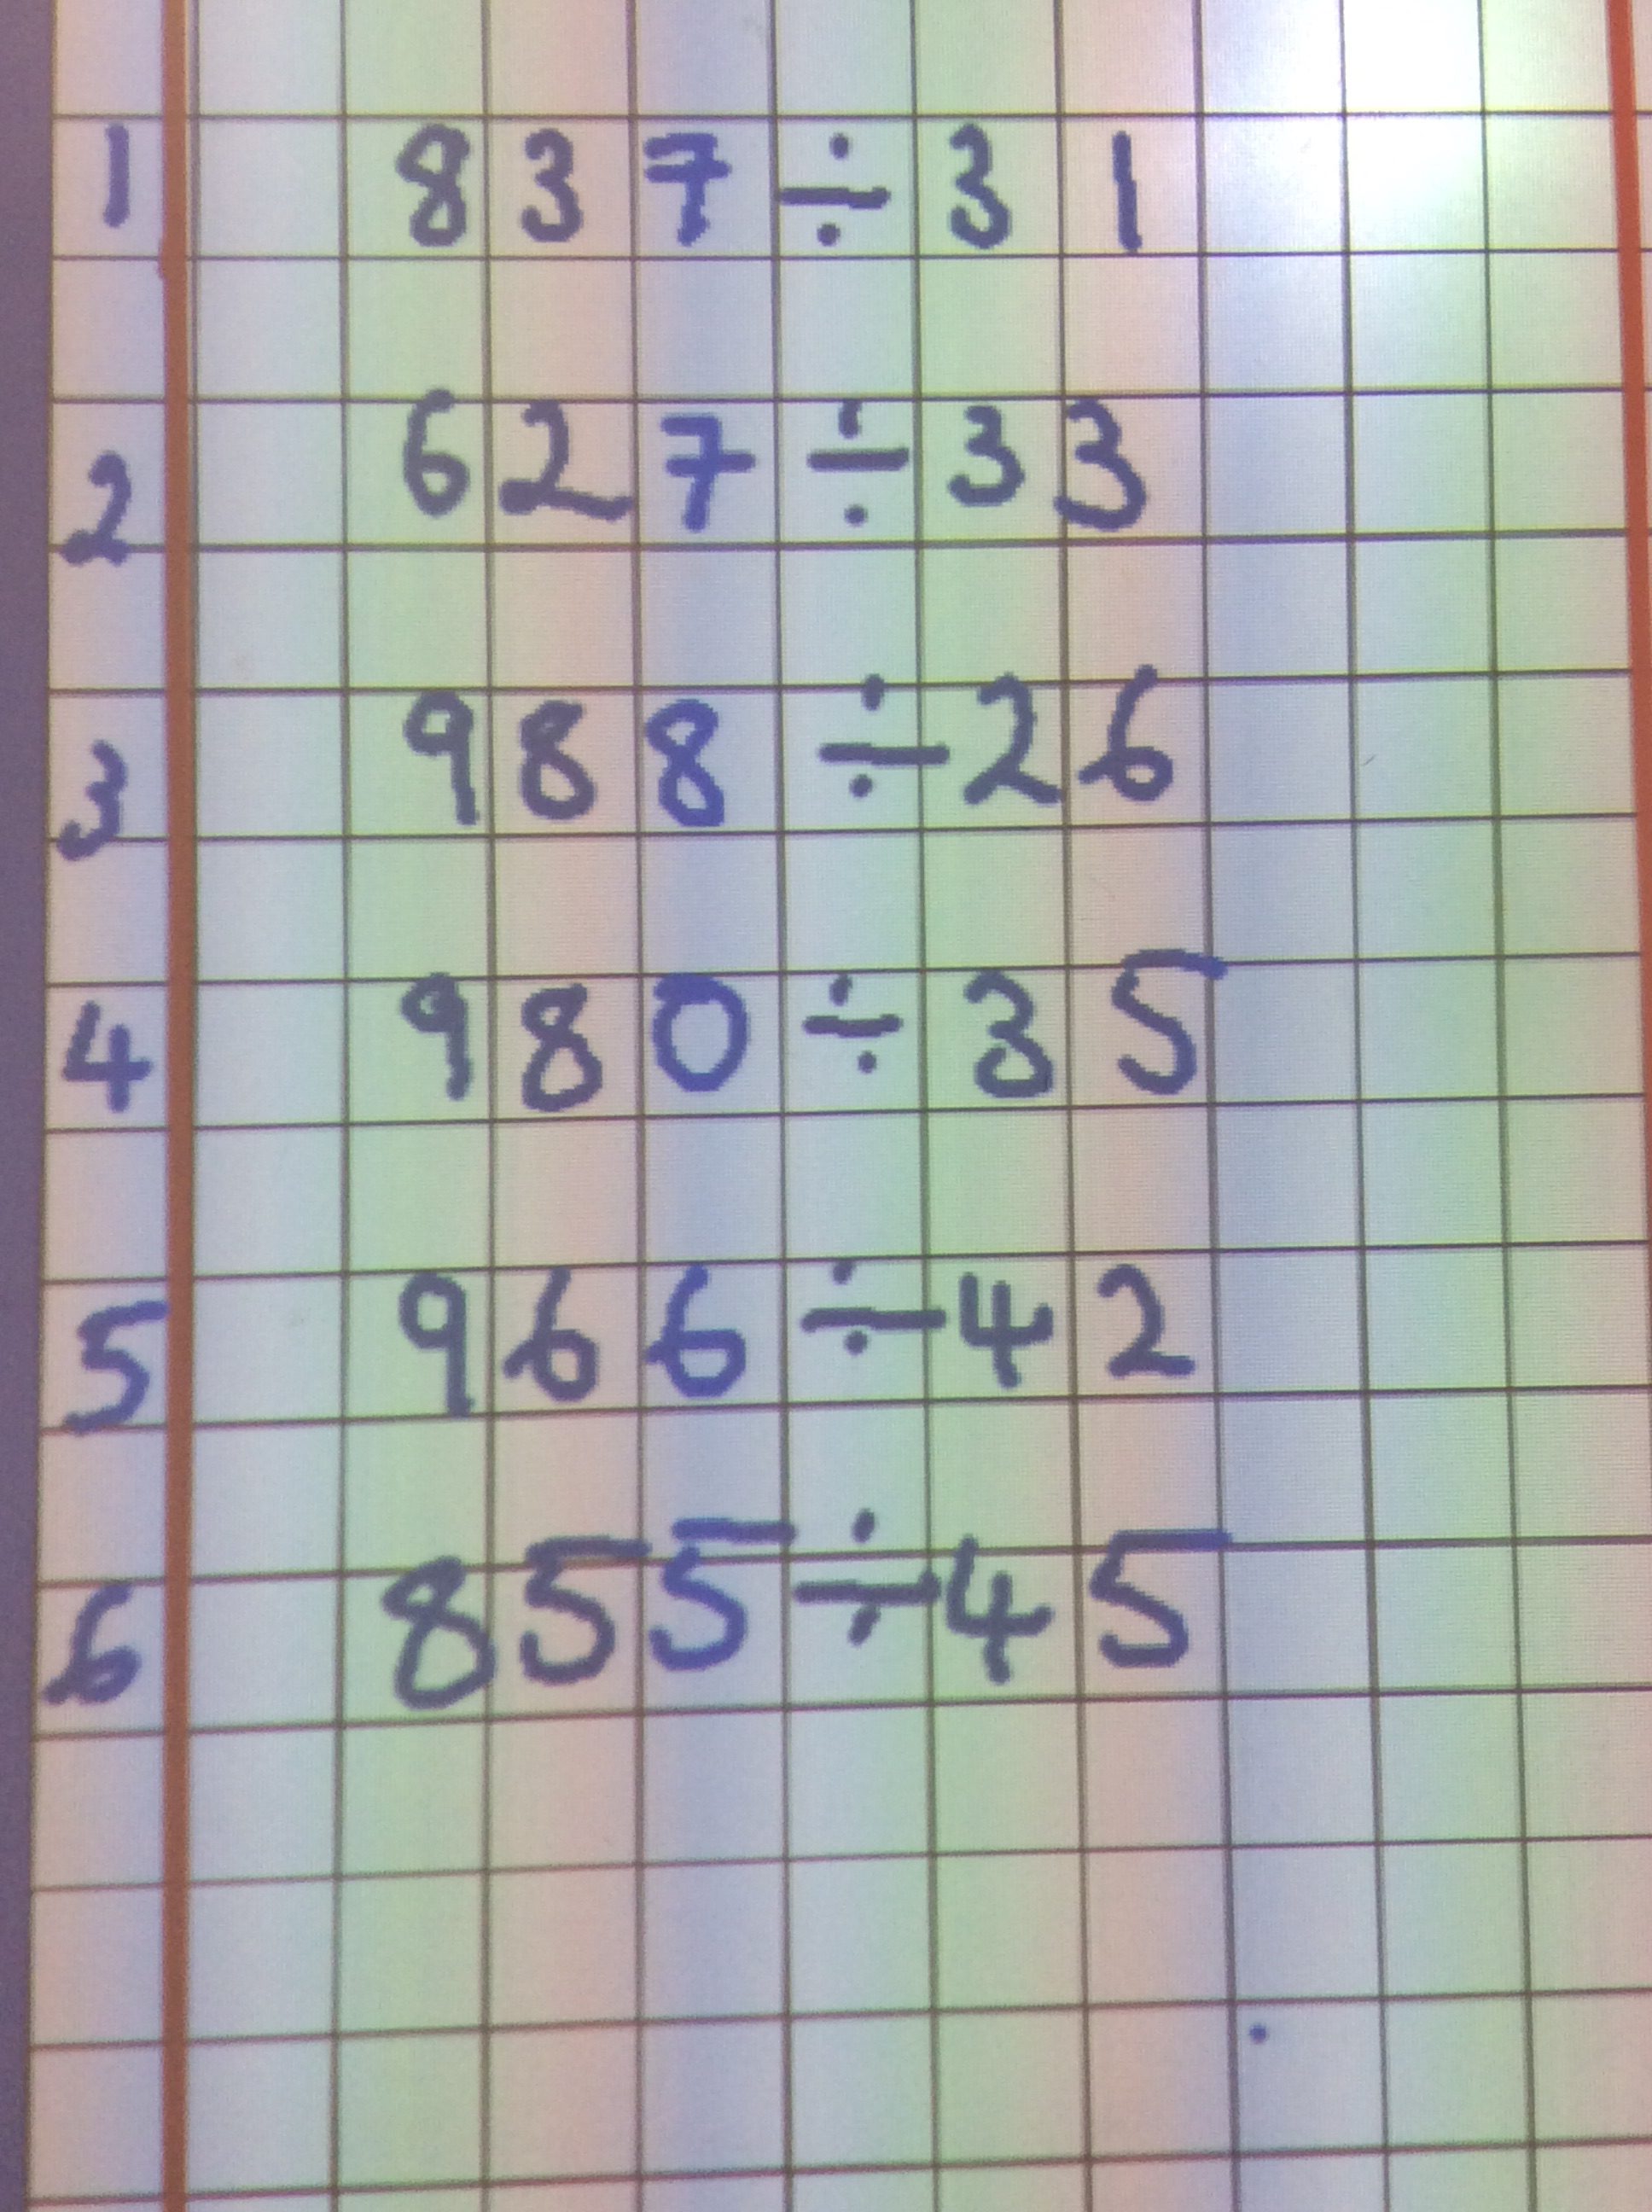 1 837 ÷ 31
2 627 ÷ 33
3 988 ÷ 26
4 980 ÷ 35
5 966 ÷ 42
6 855 ÷ 45